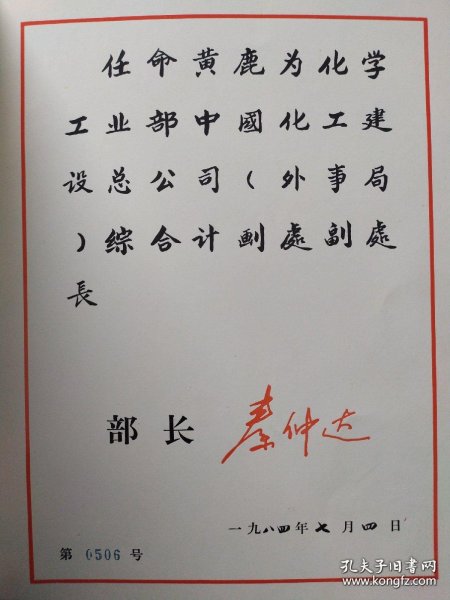 任命黄鹿为化学
工业部中國化工建
设总公司(外事局
)綜合计劃處副處
長
部长 秦仲达
一九八四年七月四日
第 0506 号
孔夫子旧书网
www.kongfz.com